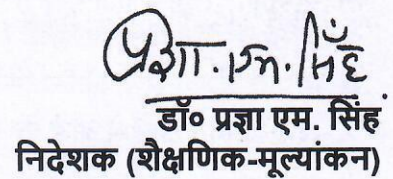 प्रज्ञा. एम. सिंह
डॉ० प्रज्ञा एम. सिंह
निदेशक (शैक्षणिक-मूल्यांकन)